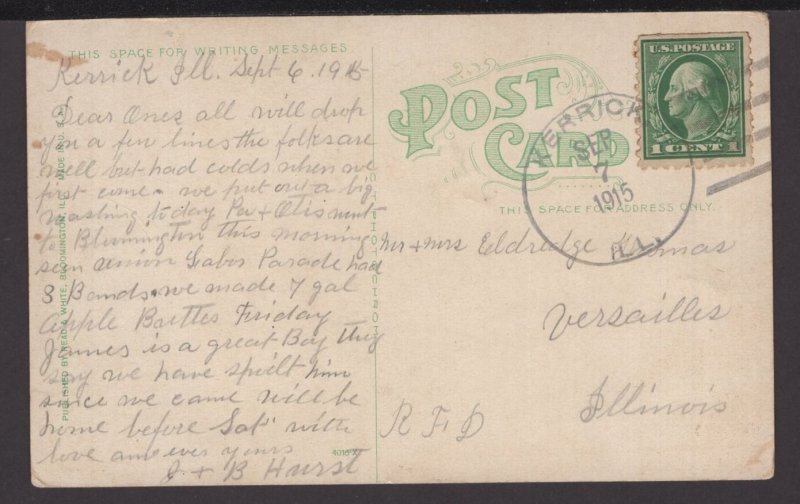 THIS SPACE FOR WRITING MESSAGES
Kerrick Ill. Sept 6, 1915
Dear Ones all will drop
you a few lines the folks are
well but had colds when we
first come. we put out a big
washing today Pa + Otis went
to Bloomington this morning
seen union Labor Parade had
8 Bands. we made 7 gal
apple Butter Friday
James is a great Boy they
say we have spoilt him
since we came will be
home before Sat with
love and ever yours
J. + B Hurst
4016 X
PUBLISHED BY READ & WHITE, BLOOMINGTON, ILL. MADE IN U. S. A.
POST
CARD
THIS SPACE FOR ADDRESS ONLY.
U.S. POSTAGE
1 CENT 1
KERRICK
SEP
7
1915
ILL.
Mr + Mrs Eldredge
Versailles
Illinois
R F D